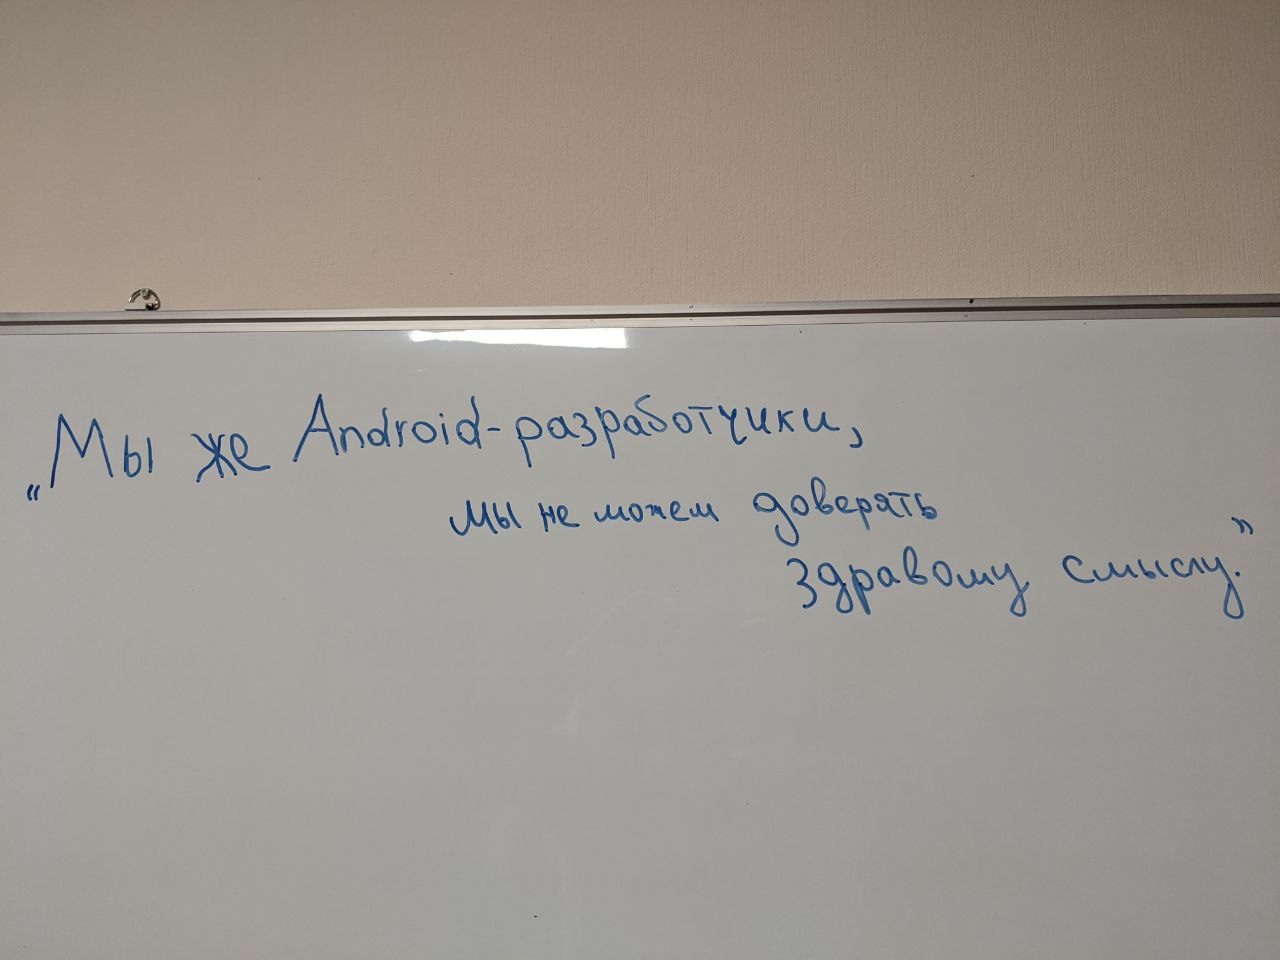 „Мы же Android-разработчики,
мы не можем доверять
здравому смыслу.”